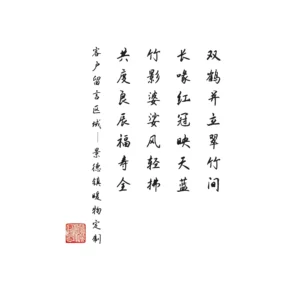 双鹤并立翠竹间
长喙红冠映天蓝
竹影婆娑风轻拂
共度良辰福寿全
客户留言区域—景德镇暖物定制